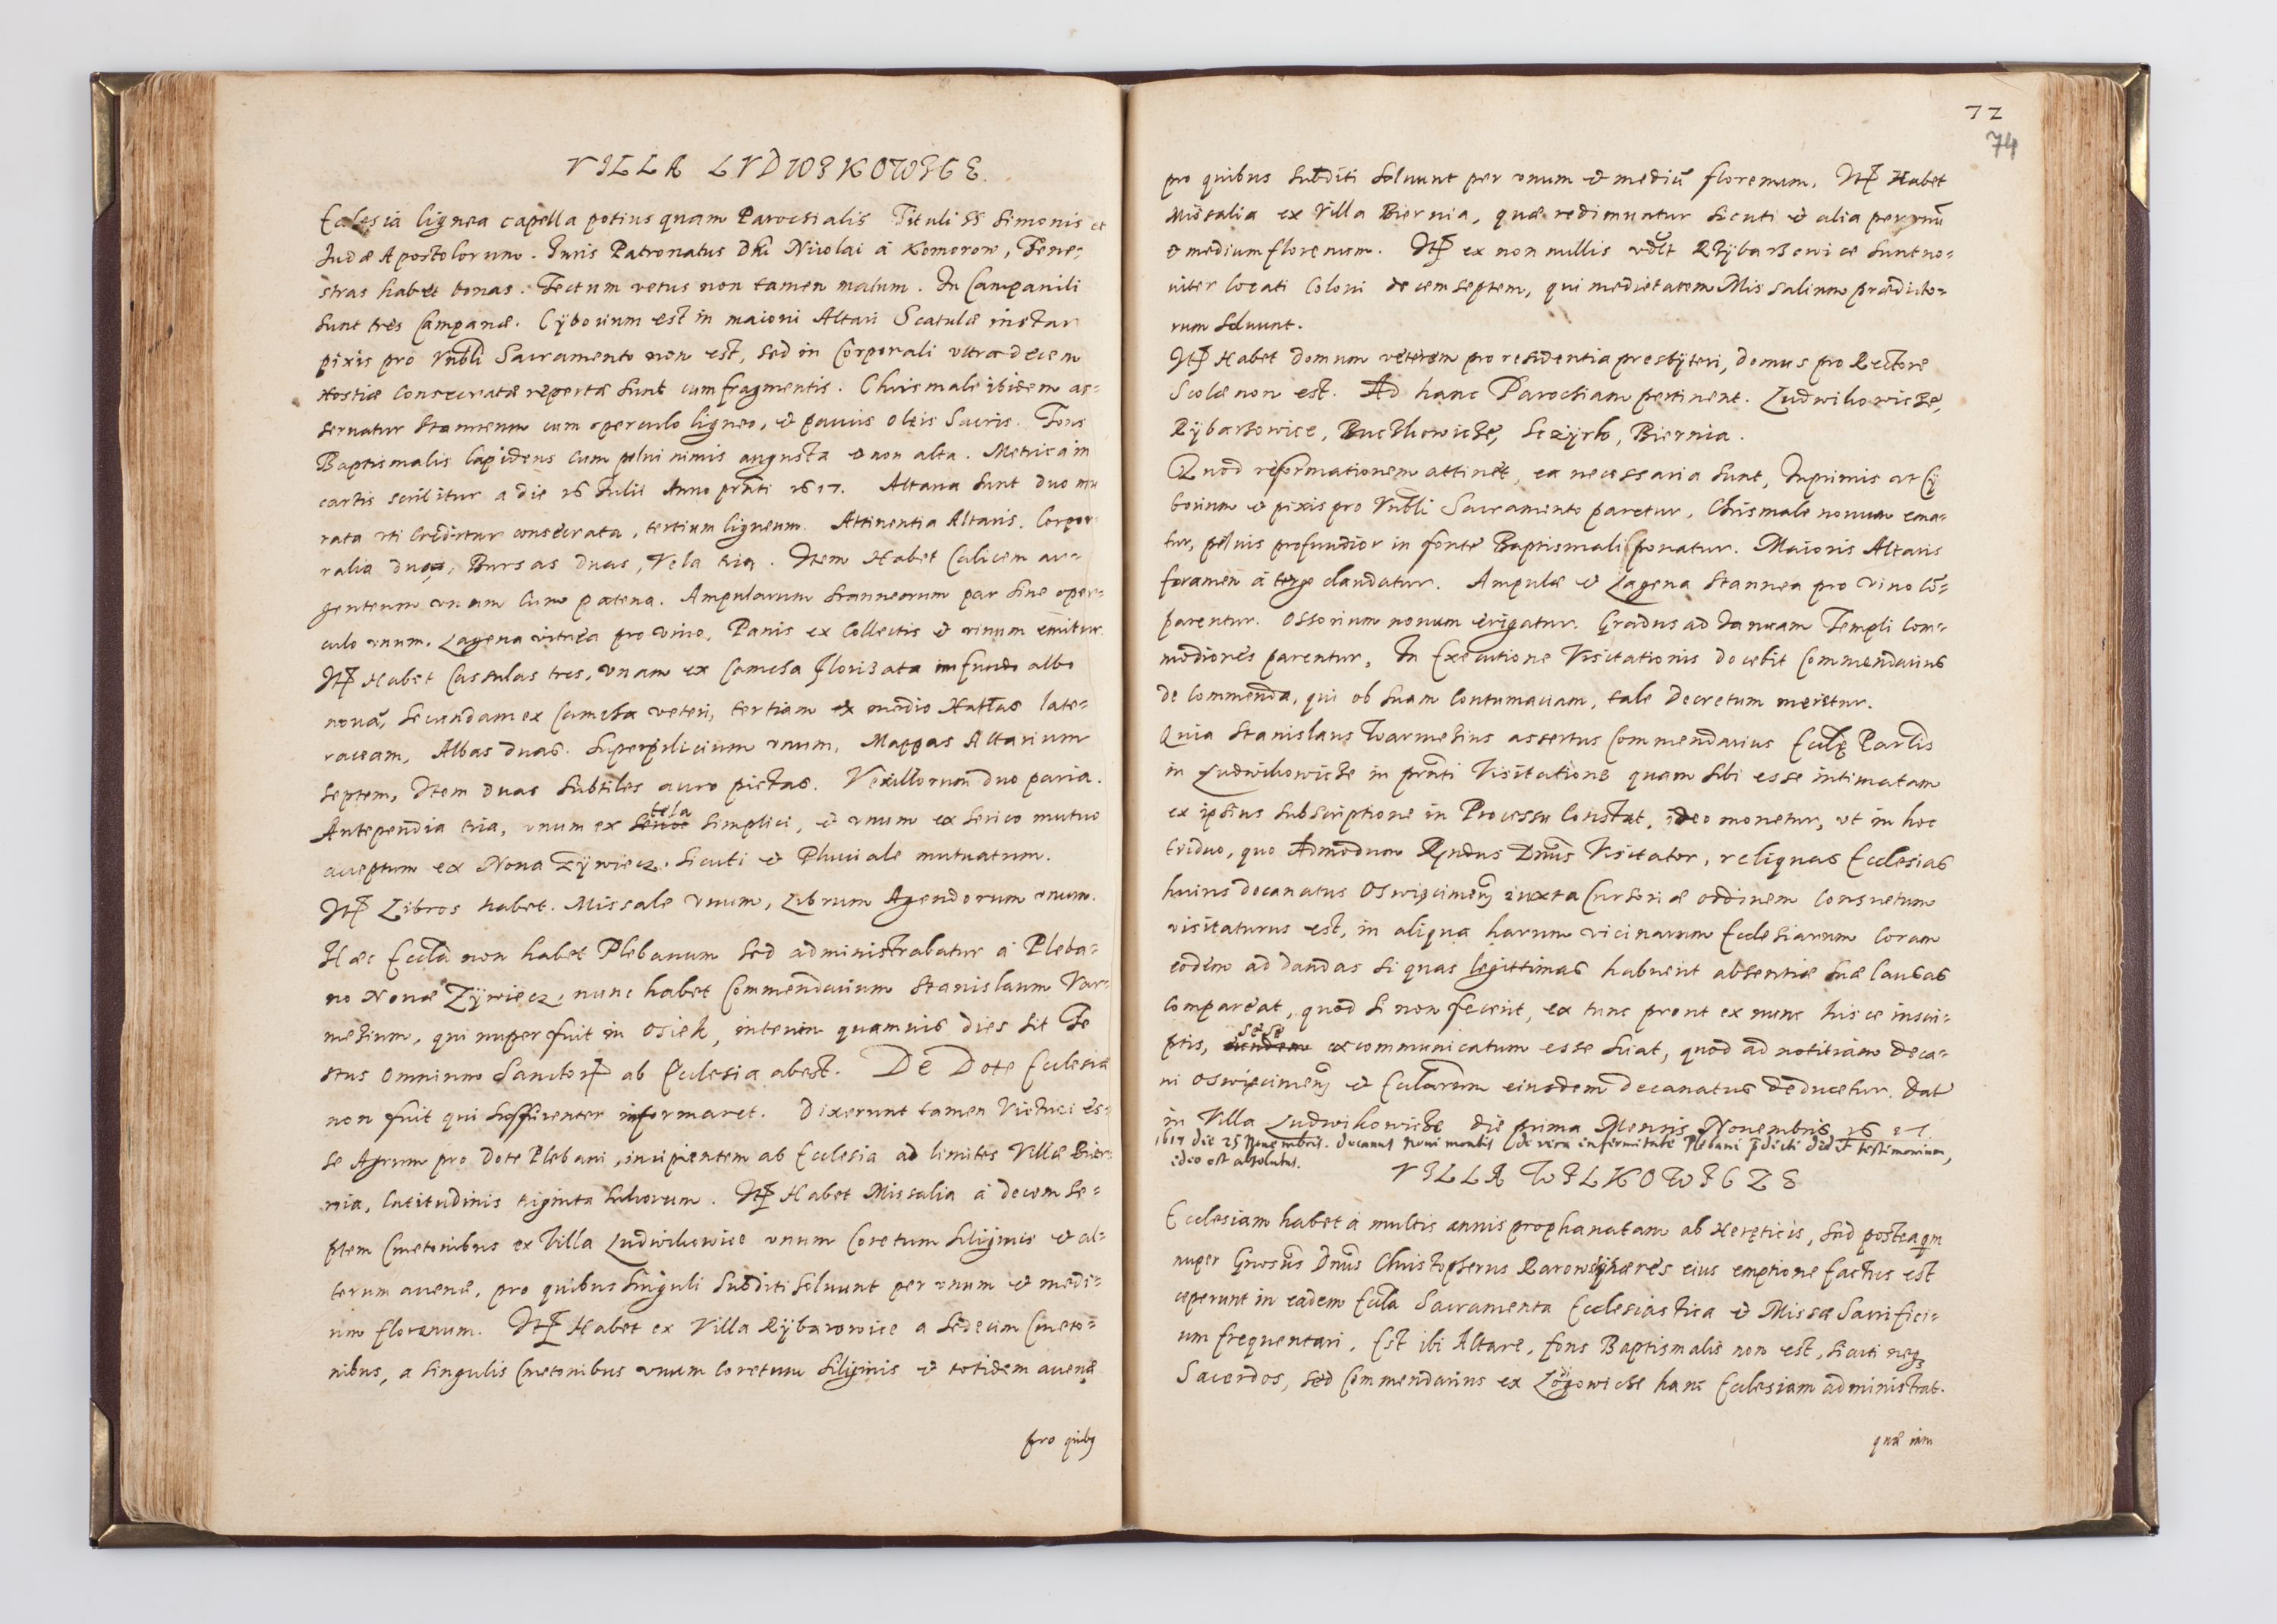 VILLA LVDWIKOWICE.
Ecclesia lignea capella potius quam Parochialis Tituli SS Simonis et
Iudæ Apostolorum. Iuris Patronatus Dñi Nicolai à Komorow, Fene-
stras habet bonas. Tectum vetus non tamen malum. In Campanili
sunt tres Campanæ. Cÿborium est in maiori Altari Scatulæ instar
pixis pro Vnbli Sacramento non est, sed in Corporali vltra decem
Hostiæ consecratæ repertæ sunt cum fragmentis. Chrismale ibidem as-
seruatur stanneum cum operculo ligneo, et paruis Oleis Sacris. Fons
Baptismalis lapideus cum pelui nimis angusta et non alta. Metrica in
cartis scribitur a die 16 Iulii Anno prñti 1617. Altaria sunt duo mu
rata vti creditur consecrata, tertium ligneum. Attinentia Altaris. Corpo-
ralia duo, Bursas duas, Vela tria. Item Habet Calicem ar-
genteum vnum cum patena. Ampularum stannearum par sine oper-
culo vnum. Lagena vitrea pro vino, Panis ex Collectis et vinum emitur
Itẽ Habet Cassulas tres, vnam ex Camcha florisata in fundo albo
nouã, secundam ex Camcha veteri, tertiam ex medio Hatlas late-
raceam, Albas duas. Superpilicium vnum, Mappas Altarium
septem, Item duas subtiles auro pictas. Vexillorum duo paria.
Antependia tria, vnum ex tela simplici, et vnum ex serico mutuo
acceptum ex Noua Zÿwiecz. sicuti et Pluuiale mutuatum.
Itẽ Libros habet. Missale vnum, Librum Agendorum vnum.
Hæc Eccla non habet Plebanum sed administrabatur à Pleba-
no Nouæ Zÿwiecz, nunc habet Commendarium Stanislaum Var-
mesium, qui nuper fuit in Osiek, interim quamuis dies sit Fe
stus omnium Sanctorũ ab Ecclesia abest. De Dote Ecclesiæ
non fuit qui sufficienter informaret. Dixerunt tamen Vitrici es-
se Agrum pro Dote Plebani, incipientem ab Ecclesia ad limites Villæ Bier-
nia, latitudinis triginta sulcorum. Itẽ Habet Missalia à decem se-
ptem Cmetonibus ex Villa Ludwikowice vnum Coretum siliginis et al-
terum auenæ, pro quibus singuli subditi soluunt per vnum et medi-
um florenum. Itẽ Habet ex Villa Rÿbarzowice a sedecim Cmeto-
nibus, a singulis Cmetonibus vnum coretum siliginis et totidem auenæ
pro quibꝫ
72
74
pro quibus subditi soluunt per vnum et mediũ florenum. Itẽ Habet
Missalia ex Villa Biernia, quæ redimuntur sicuti et alia per vnũ
et medium florenum. Itẽ ex non nullis Rÿbarzowice sunt no-
uiter locati Coloni decem septem, qui medietatem Missalium prædicto-
rum soluunt.
Itẽ Habet domum veterem pro residentia presbÿteri, domus pro Rectore
Scolæ non est. Ad hanc Parochiam pertinent. Ludwikowicze,
Rÿbarzowice, Buczkowicze, Sczÿrk, Biernia.
Quod reformationem attinet, ea necessaria sunt, Inprimis vt Cÿ
borium et pixis pro Vnbli Sacramento paretur, Chrismale nouum ema-
tur, peluis profundior in fonte Baptismali ponatur. Maioris Altaris
foramen à tergo claudatur. Ampulæ et Lagena stannea pro vino cõ-
parentur. Ossorium nouum erigatur. Gradus ad Ianuam Templi com-
modiores parentur. In Executione Visitationis docebit Commendarius
de Commenda, qui ob suam contumaciam, tale Decretum meretur.
Quia Stanislaus Warmesius assertus Commendarius Ecclę Parlis
in Ludwikowicze in prñti Visitatione quam sibi esse intimatam
ex ipsius subscriptione in Processu constat, ideo monetur, vt in hoc
triduo, quo Admodum Rñdus Dñus Visitator, reliquas Ecclesias
huius decanatus Oswięcimeñ iuxta Cursoriæ ordinem consuetum
visitaturus est, in aliqua harum vicinarum Ecclesiarum coram
eodem ad dandas si quas legittimas habuerit absentiæ suæ causas
compareat, quod si non fecerit, ex tunc prout ex nunc hisce inscri-
ptis, sese excommunicatum esse sciat, quod ad notitiam deca-
ni Oswięcimeñ et Ecclarum eiusdem decanatus deducetur. Dat
in Villa Ludwikowicze die prima Mensis Nouembris 1617.
1617 die 25 Nouembris. Decanus Noui montis de vera infirmitate Plebani p̃dicti dedit testimonium,
ideo est absolutus.
VILLA WILKOWICZE
Ecclesiam habet à multis annis prophanatam ab Hereticis, sed posteaqm
nuper Gnosus Dñus Christopherus Rarowsky hæres eius emptione factus est
ceperunt in eadem Eccla Sacramenta Ecclesiastica et Missæ Sacrifici-
um frequentari. Est ibi Altare, fons Baptismalis non est, sicuti neqꝫ
Sacerdos, sed Commendarius ex Lodigowicze hanc Ecclesiam administrat.
quæ iam